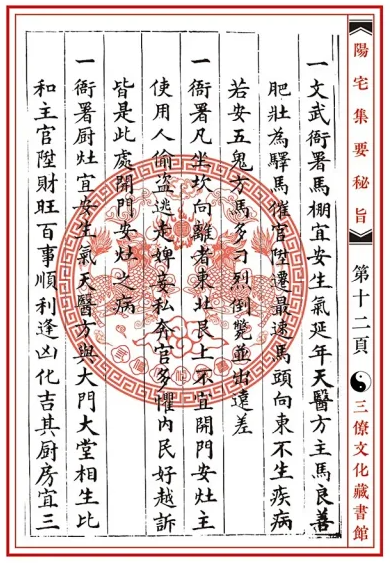 陽宅集要秘旨
第十二頁
三僚文化藏書館
一文武衙署馬棚宜安生氣延年天醫方主馬良善
肥壯為驛馬催官陞遷最速馬頭向東不生疾病
若安五鬼方馬多刁烈倒斃並出遠差
一衙署凡坐坎向離者東北艮上不宜開門安灶主
使用人偷盜逃走婢妾私奔官多懼內民好越訴
皆是此處開門安灶之病
一衙署厨灶宜安生氣天醫方與大門大堂相生比
和主官陞財旺百事順利逢凶化吉其厨房宜三